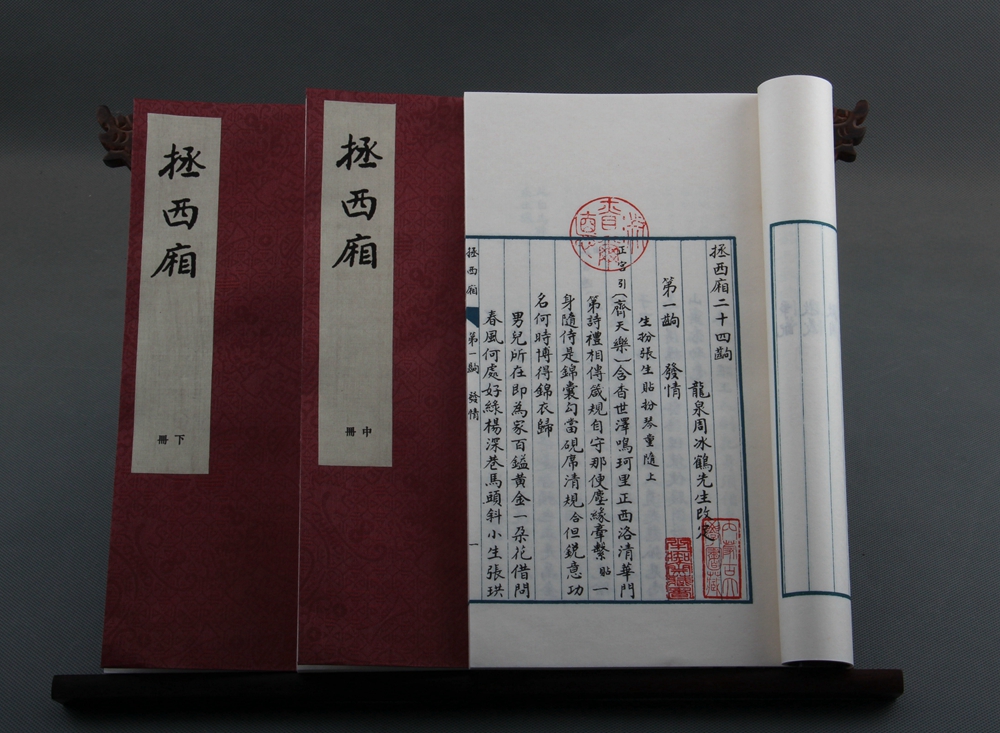 拯西廂
下冊
拯西廂
中冊
拯西廂二十四齣
龍泉周冰鶴先生改定
第一齣 發情
生扮張生貼扮琴童隨上
正宮引(齊天樂)含香世澤鳴珂里正西洛清華門
第詩禮相傳箴規自守那使塵緣牽繫貼一
身隨侍是錦囊勾當硯席清規合但銳意功
名何時博得錦衣歸
男兒所在即為家百鎰黃金一朶花借問
春風何處好綠楊深巷馬頭斜小生張珙
拯西廂 第一齣 發情 一